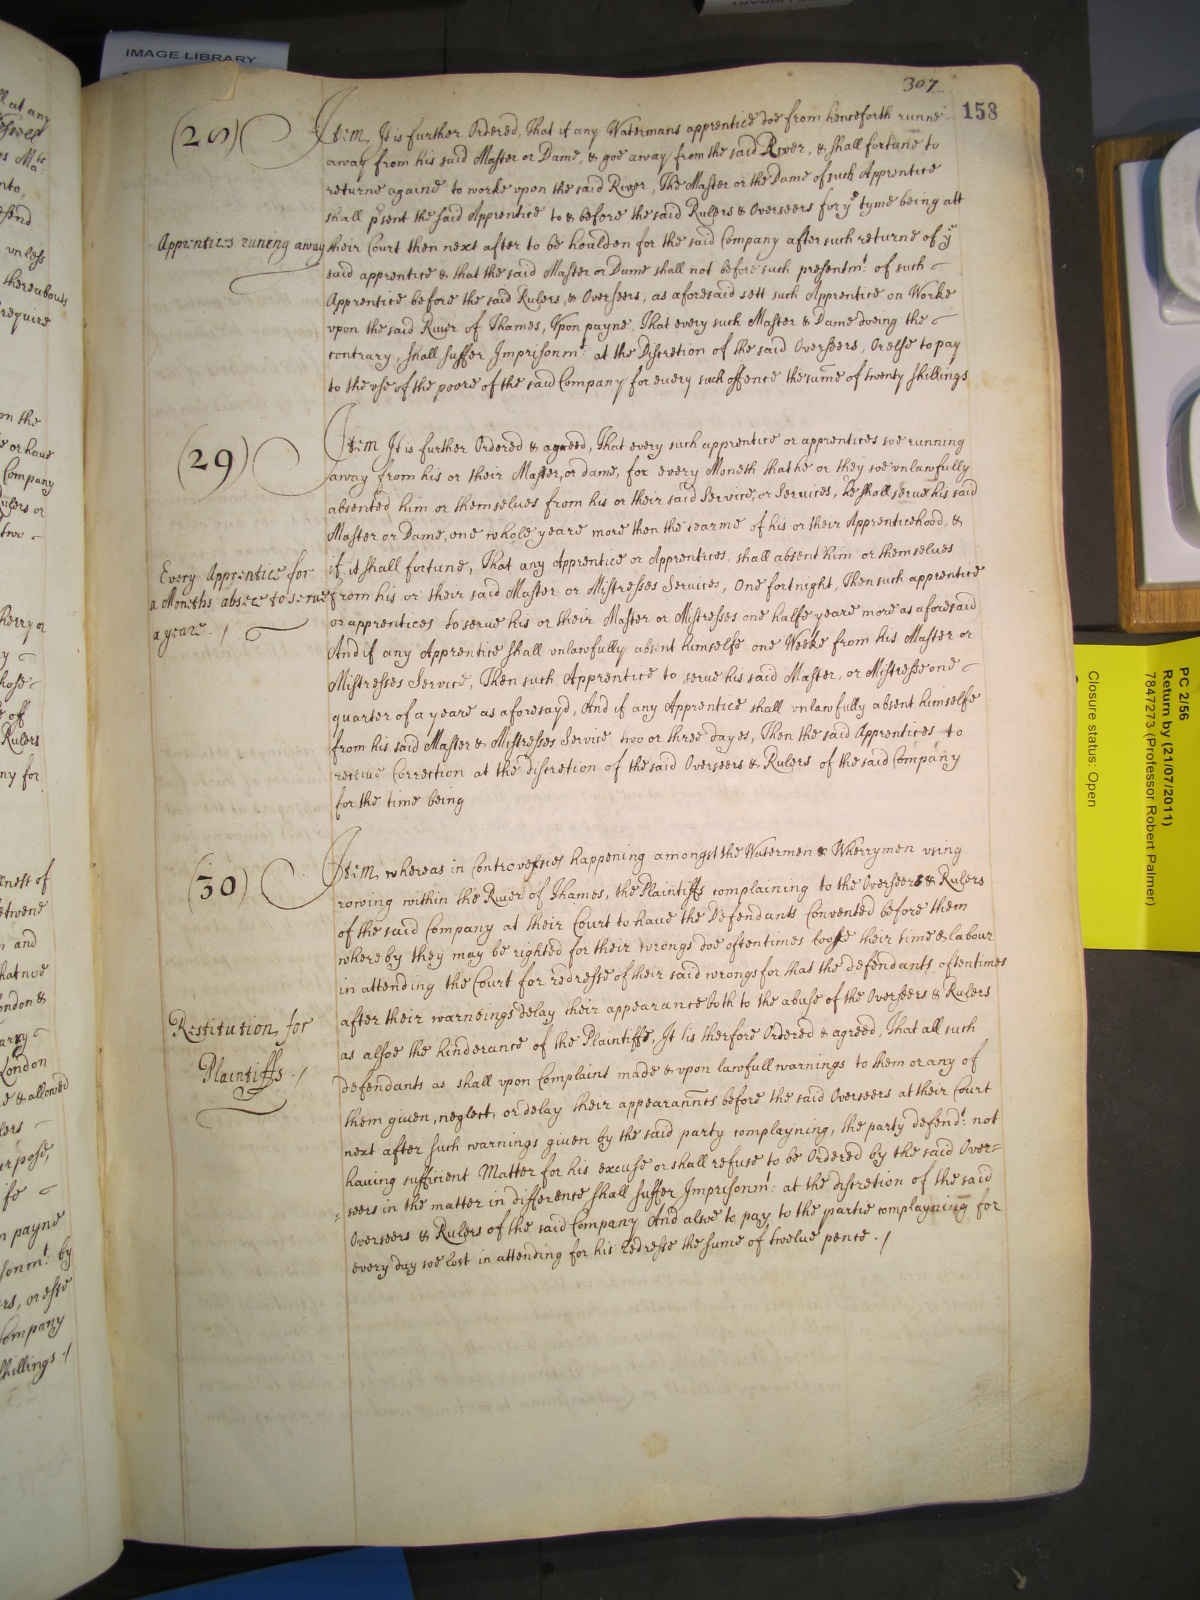 IMAGE LIBRARY
307
158
(28) Item, It is further Ordered, That if any Watermans apprentice doe from henseforth runne
away from his said Master or Dame, & goe away from the said River, & shall fortune to
returne againe to worke vpon the said River, The Master or the Dame of such Apprentice
shall p'sent the said Apprentice to & before the said Rulers & Overseers for ye tyme being att
Apprentices runing away
their Court then next after to be houlden for the said Company after such returne of ye
said apprentice & that the said Master or Dame shall not before such presentmt: of such
Apprentice before the said Rulers, & Overseers, as aforesaid sett such Apprentice on Worke
vpon the said River of Thames, Vpon payne, That every such Master & Dame doeing the
contrary, shall suffer Imprisonmt: at the Discretion of the said Overseers, Or else to pay
to the vse of the poore of the said Company for every such offence the sume of twenty shillings
(29) Item It is further Ordered & agreed, That every such apprentice or apprentices soe running
away from his or their Master, or dame, for every Moneth that he or they soe vnlawfully
absented him or themselues from his or their said Service, or Services, he shall serue his said
Master or Dame, one whole yeare more then the tearme of his or their Apprenticehood, &
if it shall fortune, That any Apprentice or Apprentices shall absent him or themselues
Every Apprentice for
a Moneths absece to serue
a yeare. /
from his or their said Master or Mistresses Services, One fortnight, Then such apprentice
or apprentices to serue his or their Master or Mistresses one halfe yeare more as aforesaid
And if any Apprentice shall vnlawfully absent himselfe one Weeke from his Master or
Mistresses Service, Then such Apprentice to serue his said Master, or Mistresse one
quarter of a yeare as aforesayd, And if any Apprentice shall vnlawfully absent himselfe
from his said Master & Mistresses Service two or three dayes, Then the said Apprentices to
receiue Correction at the discretion of the said Overseers & Rulers of the said Company
for the time being
(30) Item, whereas in Controversies happening amongst the Watermen & Wherrymen vsing
rowing within the River of Thames, the Plaintiffs complaining to the Overseers & Rulers
of the said Company at their Court to haue the Defendants Convented before them
where by they may be righted for their wrongs doe oftentimes loose their time & labour
in attending the Court for redresse of their said wrongs for that the defendants oftentimes
after their warneings delay their appearance both to the abuse of the Overseers & Rulers
Restitution for
Plaintiffs. /
as alsoe the hinderance of the Plaintiffs, It is therfore Ordered & agreed, That all such
defendants as shall vpon Complaint made & vpon lawfull warnings to them or any of
them given, neglect, or delay their appearannces before the said Overseers at their Court
next after such warnings given by the said party complayning, the party defendt: not
hauing sufficient Matter for his excuse or shall refuse to be Ordered by the said Over=
=seers in the matter in difference shall suffer Imprisonmt: at the discretion of the said
Overseers & Rulers of the said Company And alsoe to pay to the partie complayning for
every day soe lost in attending for his Redresse the sume of twelue pence. /
PC 2/56
Return by (21/07/2011)
7847273 (Professor Robert Palmer)
Closure status: Open